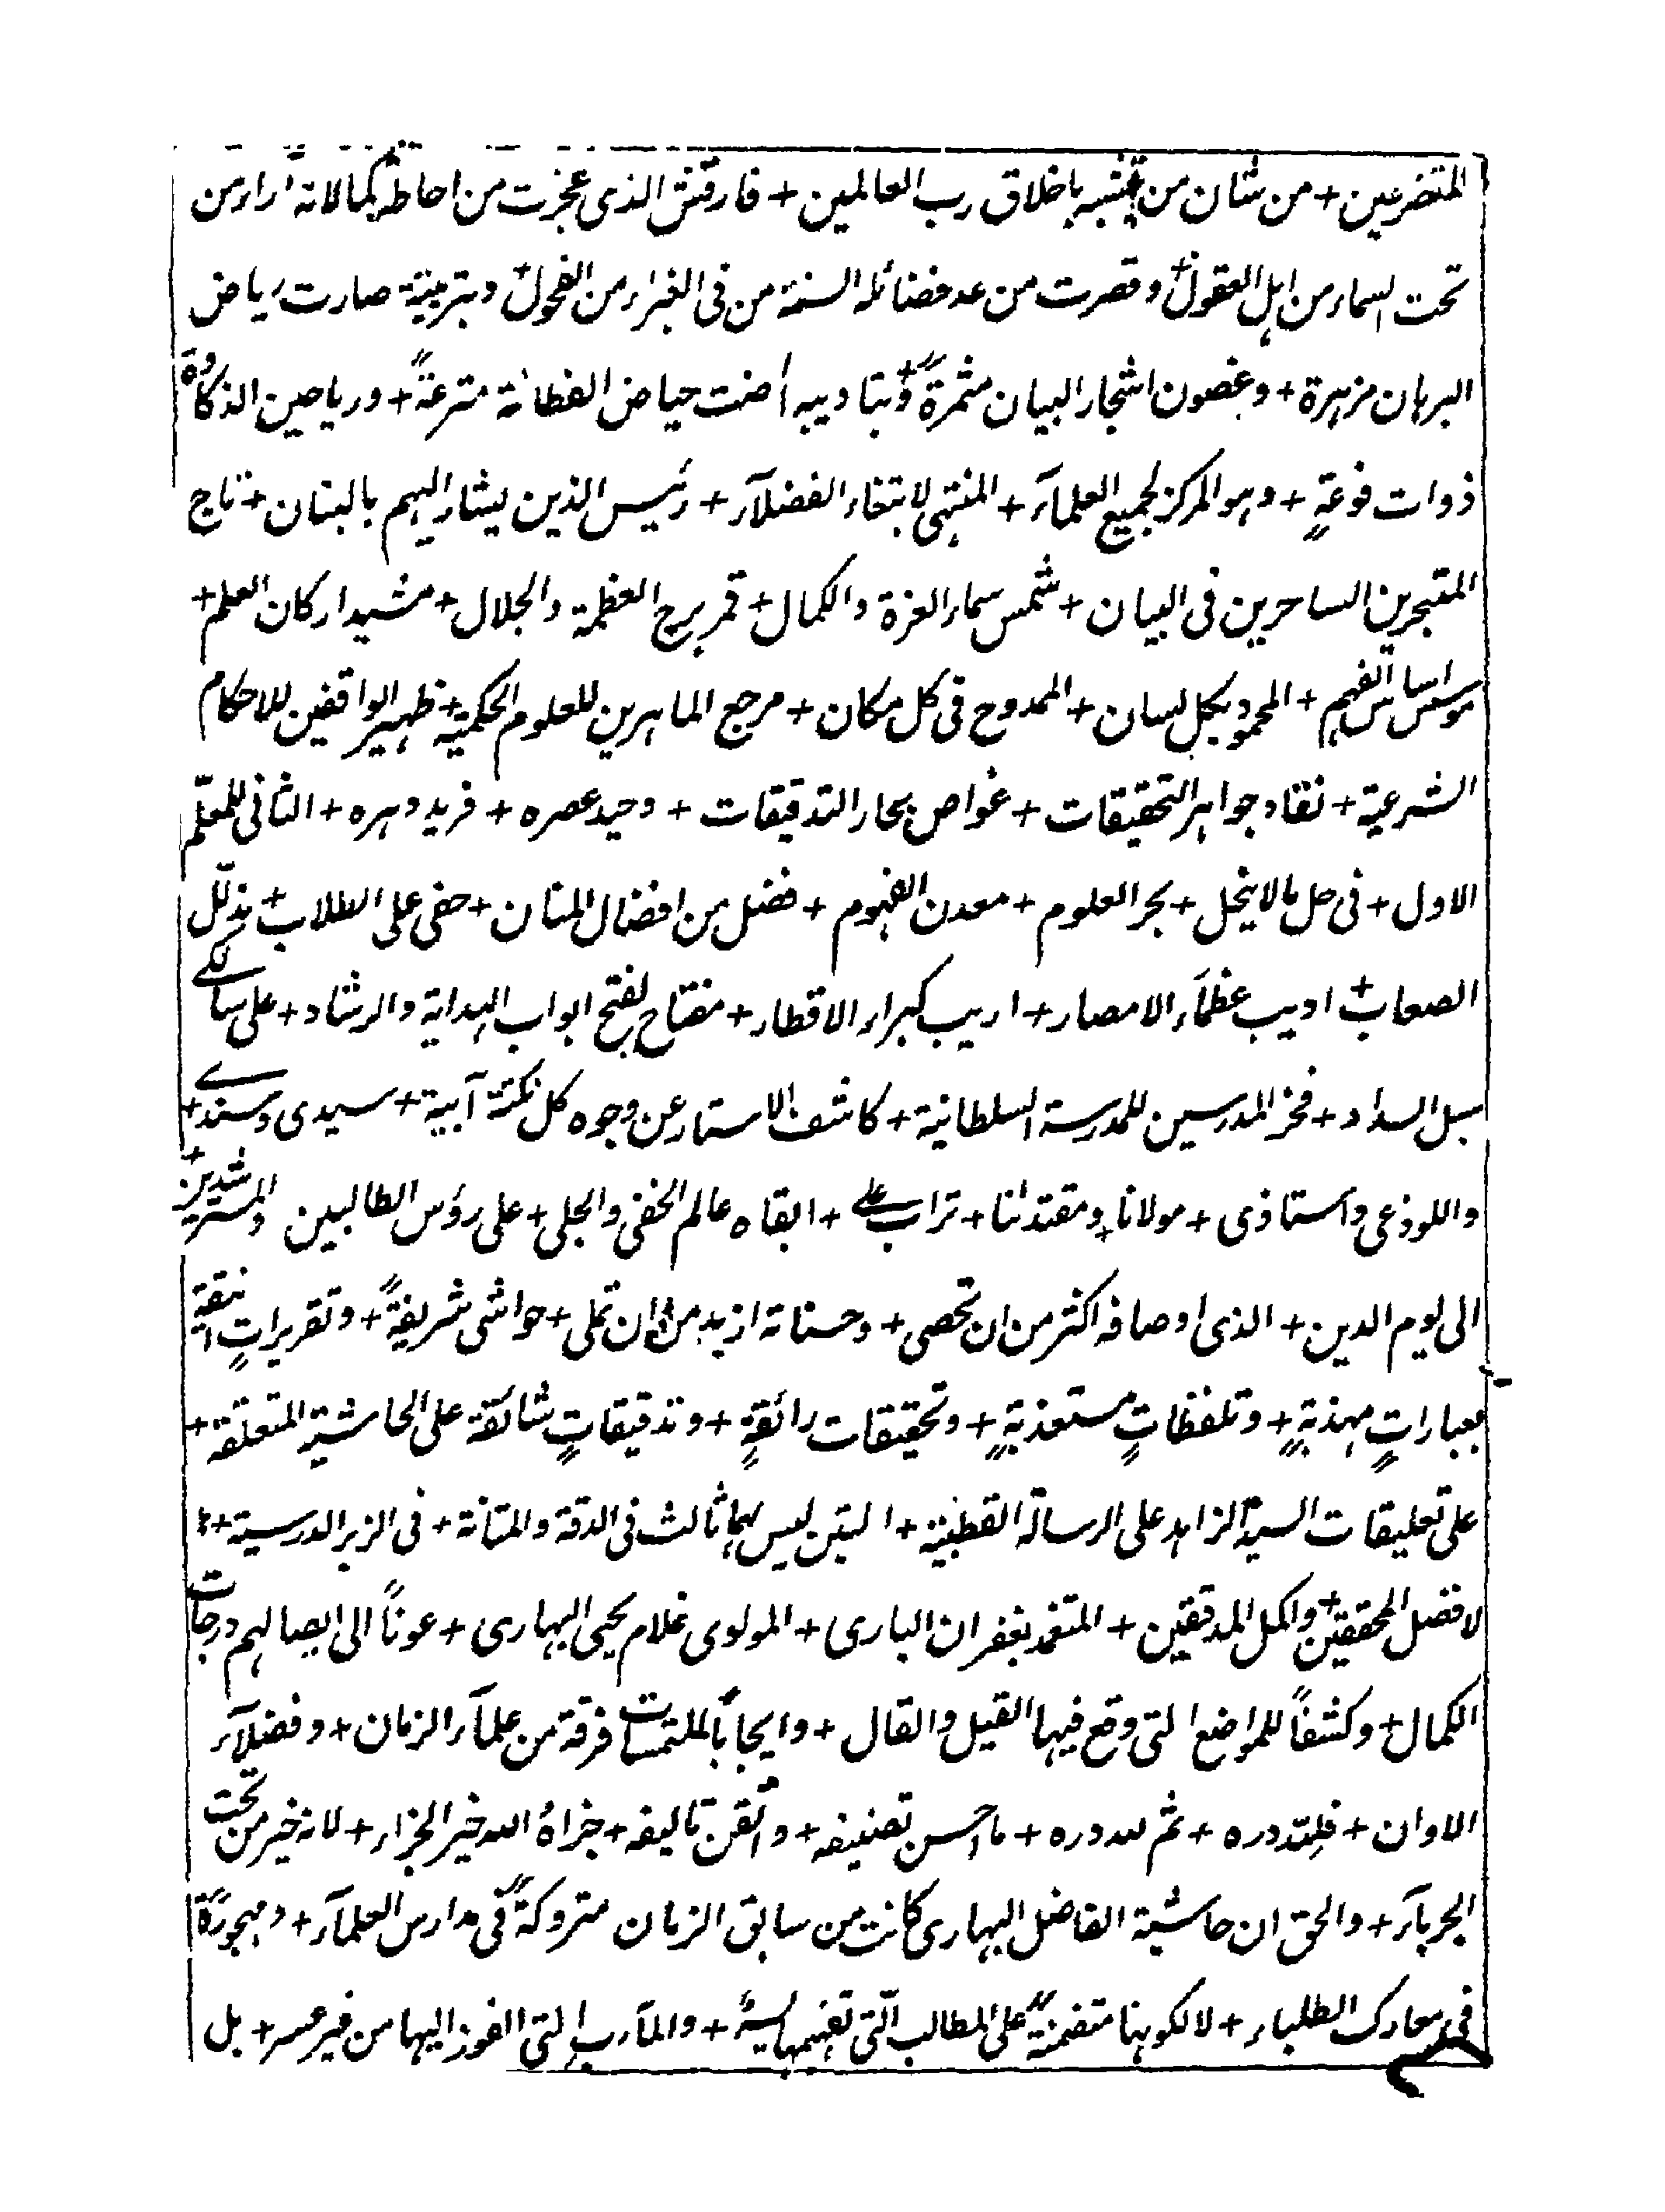 المتضرعين + من شان من تشبه باخلاق رب العالمين + فارتقش الذى عجزت من احاطة كمالاته آراء من
تحت السماء من اہل العقول + وقصرت من عد فضائله السنة من فى الغبراء من الفحول + وبتربيته صارت رياض
البرہان مزہرة + وغصون اشجار البيان مثمرةً + وبتاديبه اضت حياض الفطانة مترعةً + ورياحين الذكاوة
ذوات فوعةٍ + وہو المركز لجميع العلمآء + المنتہى لابتغاء الفضلآء + رئيس الذين يشار اليہم بالبنان + تاج
المتبحرين الساحرين فى البيان + شمس سماء العزة والكمال + قمر برج العظمة والجلال + مشيد اركان العلم +
موسس اساس الفہم + المحمود بكل لسان + الممدوح فى كل مكان + مرجع الماہرين للعلوم الحكمية + ظہير الواقفين للاحكام
الشرعية + نقاد جواہر التحقيقات + غواص بحار التدقيقات + وحيد عصره + فريد دہره + الثانى للمعلّم
الاول + فى حل ما لا ينحل + بحر العلوم + معدن الفہوم + فضل من افضال المنان + حفى على الطلاب + بذلّل
الصعاب + اديب عظمآء الامصار + اريب كبراء الاقطار + مفتاح لفتح ابواب الہداية والرشاد + على سالكے
سبل السداد + فخر المدرسين للمدرسة السلطانية + كاشف الاستار عن وجوه كل نكتة آبية + سيدى وسندے +
واللوذعى واستاذى + مولانا ومقتدانا + تراب علے + ابقاه عالم الخفى والجلى + على رؤس الطالبين والمسترشدين +
الى يوم الدين + الذى اوصافه اكثر من ان تحصى + وحسناته ازيد من ان تملى + حواشى شريفةً + وتقريراتٍ انيقة
بعباراتٍ مہذبةٍ + وتلفظاتٍ مستعذبةٍ + وتحقيقات رائقةٍ + وتدقيقاتٍ شائقة على الحاشية المتعلقة +
على تعليقات السيد الزاہد على الرسالة القطبية + التين ليس لہما ثالث فى الدقة والمتانة + فى الزبر الدرسية +
لافضل المحققين + واكمل المدققين + المتغمد بغفران البارى + المولوى غلام يحيى البہارى + عوناً الى ايصالہم درجات
الكمال + وكشفاً للمواضع التى وقع فيہا القيل والقال + وايجاباً لملتمسات فرقة من علمآء الزمان + وفضلآء
الاوان + فللّه دره + ثم لله دره + ما احسن تصنيفه + واتقن تاليفه + جزاهُ الله خير الجزاء + لانه خير من تحت
الجربآء + والحق ان حاشية الفاضل البہارى كانت من سابق الزمان متروكةً فى مدارس العلمآء + ومہجورةً
فى معارك الطلباء + لا لكونہا متضمنةً على المطالب الّتى تفہمہا يسيرً + والمآرب التى الفوز اليہا من غير عسر + بل